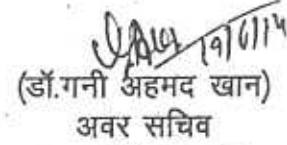 19/6/14
(डॉ.गनी अहमद खान)
अवर सचिव